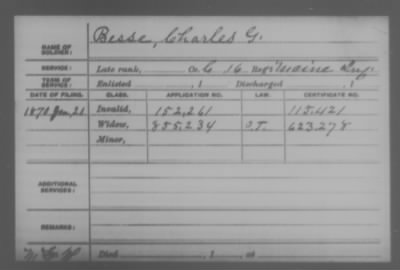 Besse, Charles G.
NAME OF SOLDIER:
SERVICE: Late rank, Co. C 16 Reg't Maine Inf.
TERM OF SERVICE: Enlisted , 1 Discharged , 1
DATE OF FILING. CLASS. APPLICATION NO. LAW. CERTIFICATE NO.
1870 Jan, 21 Invalid, 152,261 115,421
Widow, 855,234 O.T. 623,278
Minor,
ADDITIONAL SERVICES:
REMARKS:
Died , 1 , at